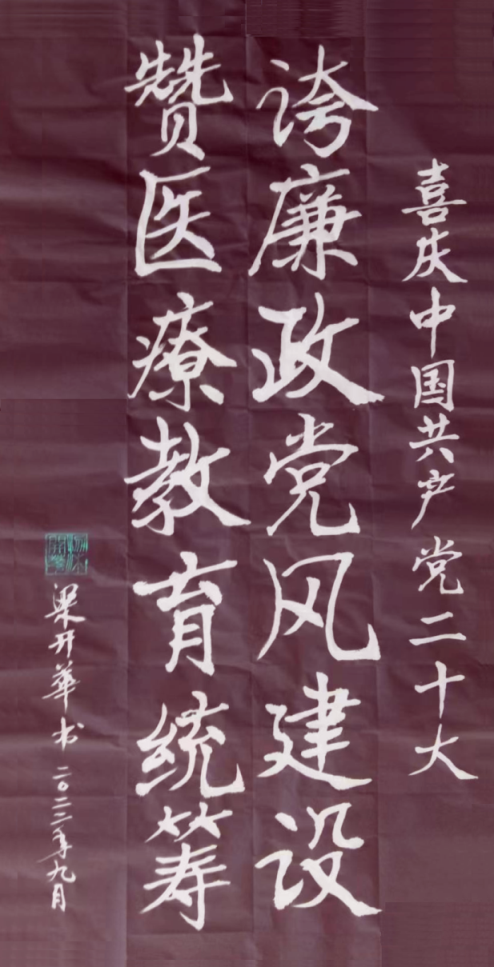 喜庆中国共产党二十大
诗廉政党风建设
赞医療教育统筹
梁开華书
二〇二二年九月